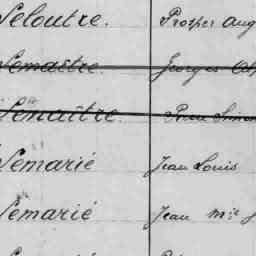 Leloutre. Prosper Aug
Lemaître. Georges
Lemaître. Simon
Lemarié Jean Louis
Lemarié Jean Mie